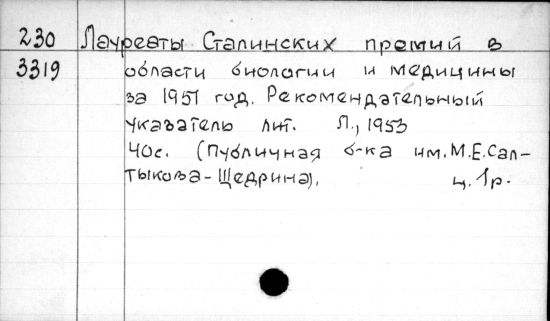 230 Лауреаты Сталинских премий в
3319 области биологии и медицины
за 1951 год. Рекомендательный
указатель лит. Л., 1953
40с. (Публичная б-ка им. М.Е. Сал-
тыкова-Щедрина). ц. 1р.